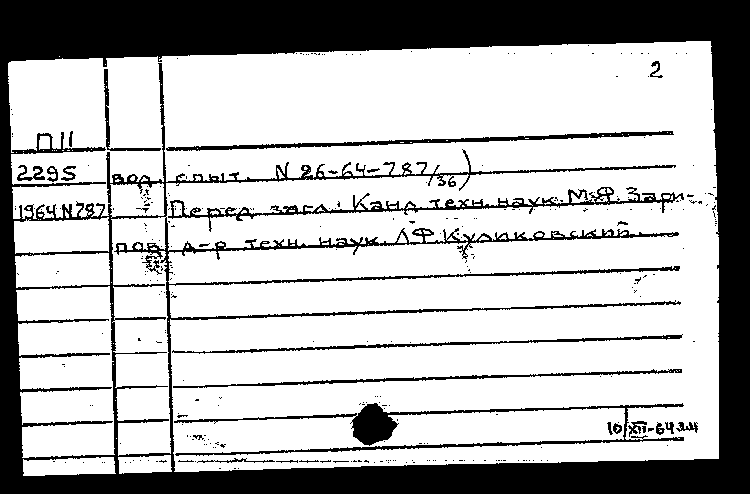 2
П11
2295 вод. опыт. N 26-64-787/36)
1964 N 787 Перед загл.: Канд. техн. наук М.Ф. Зари-
пов, д-р техн. наук Л.Ф. Куликовский.
10/XII-64